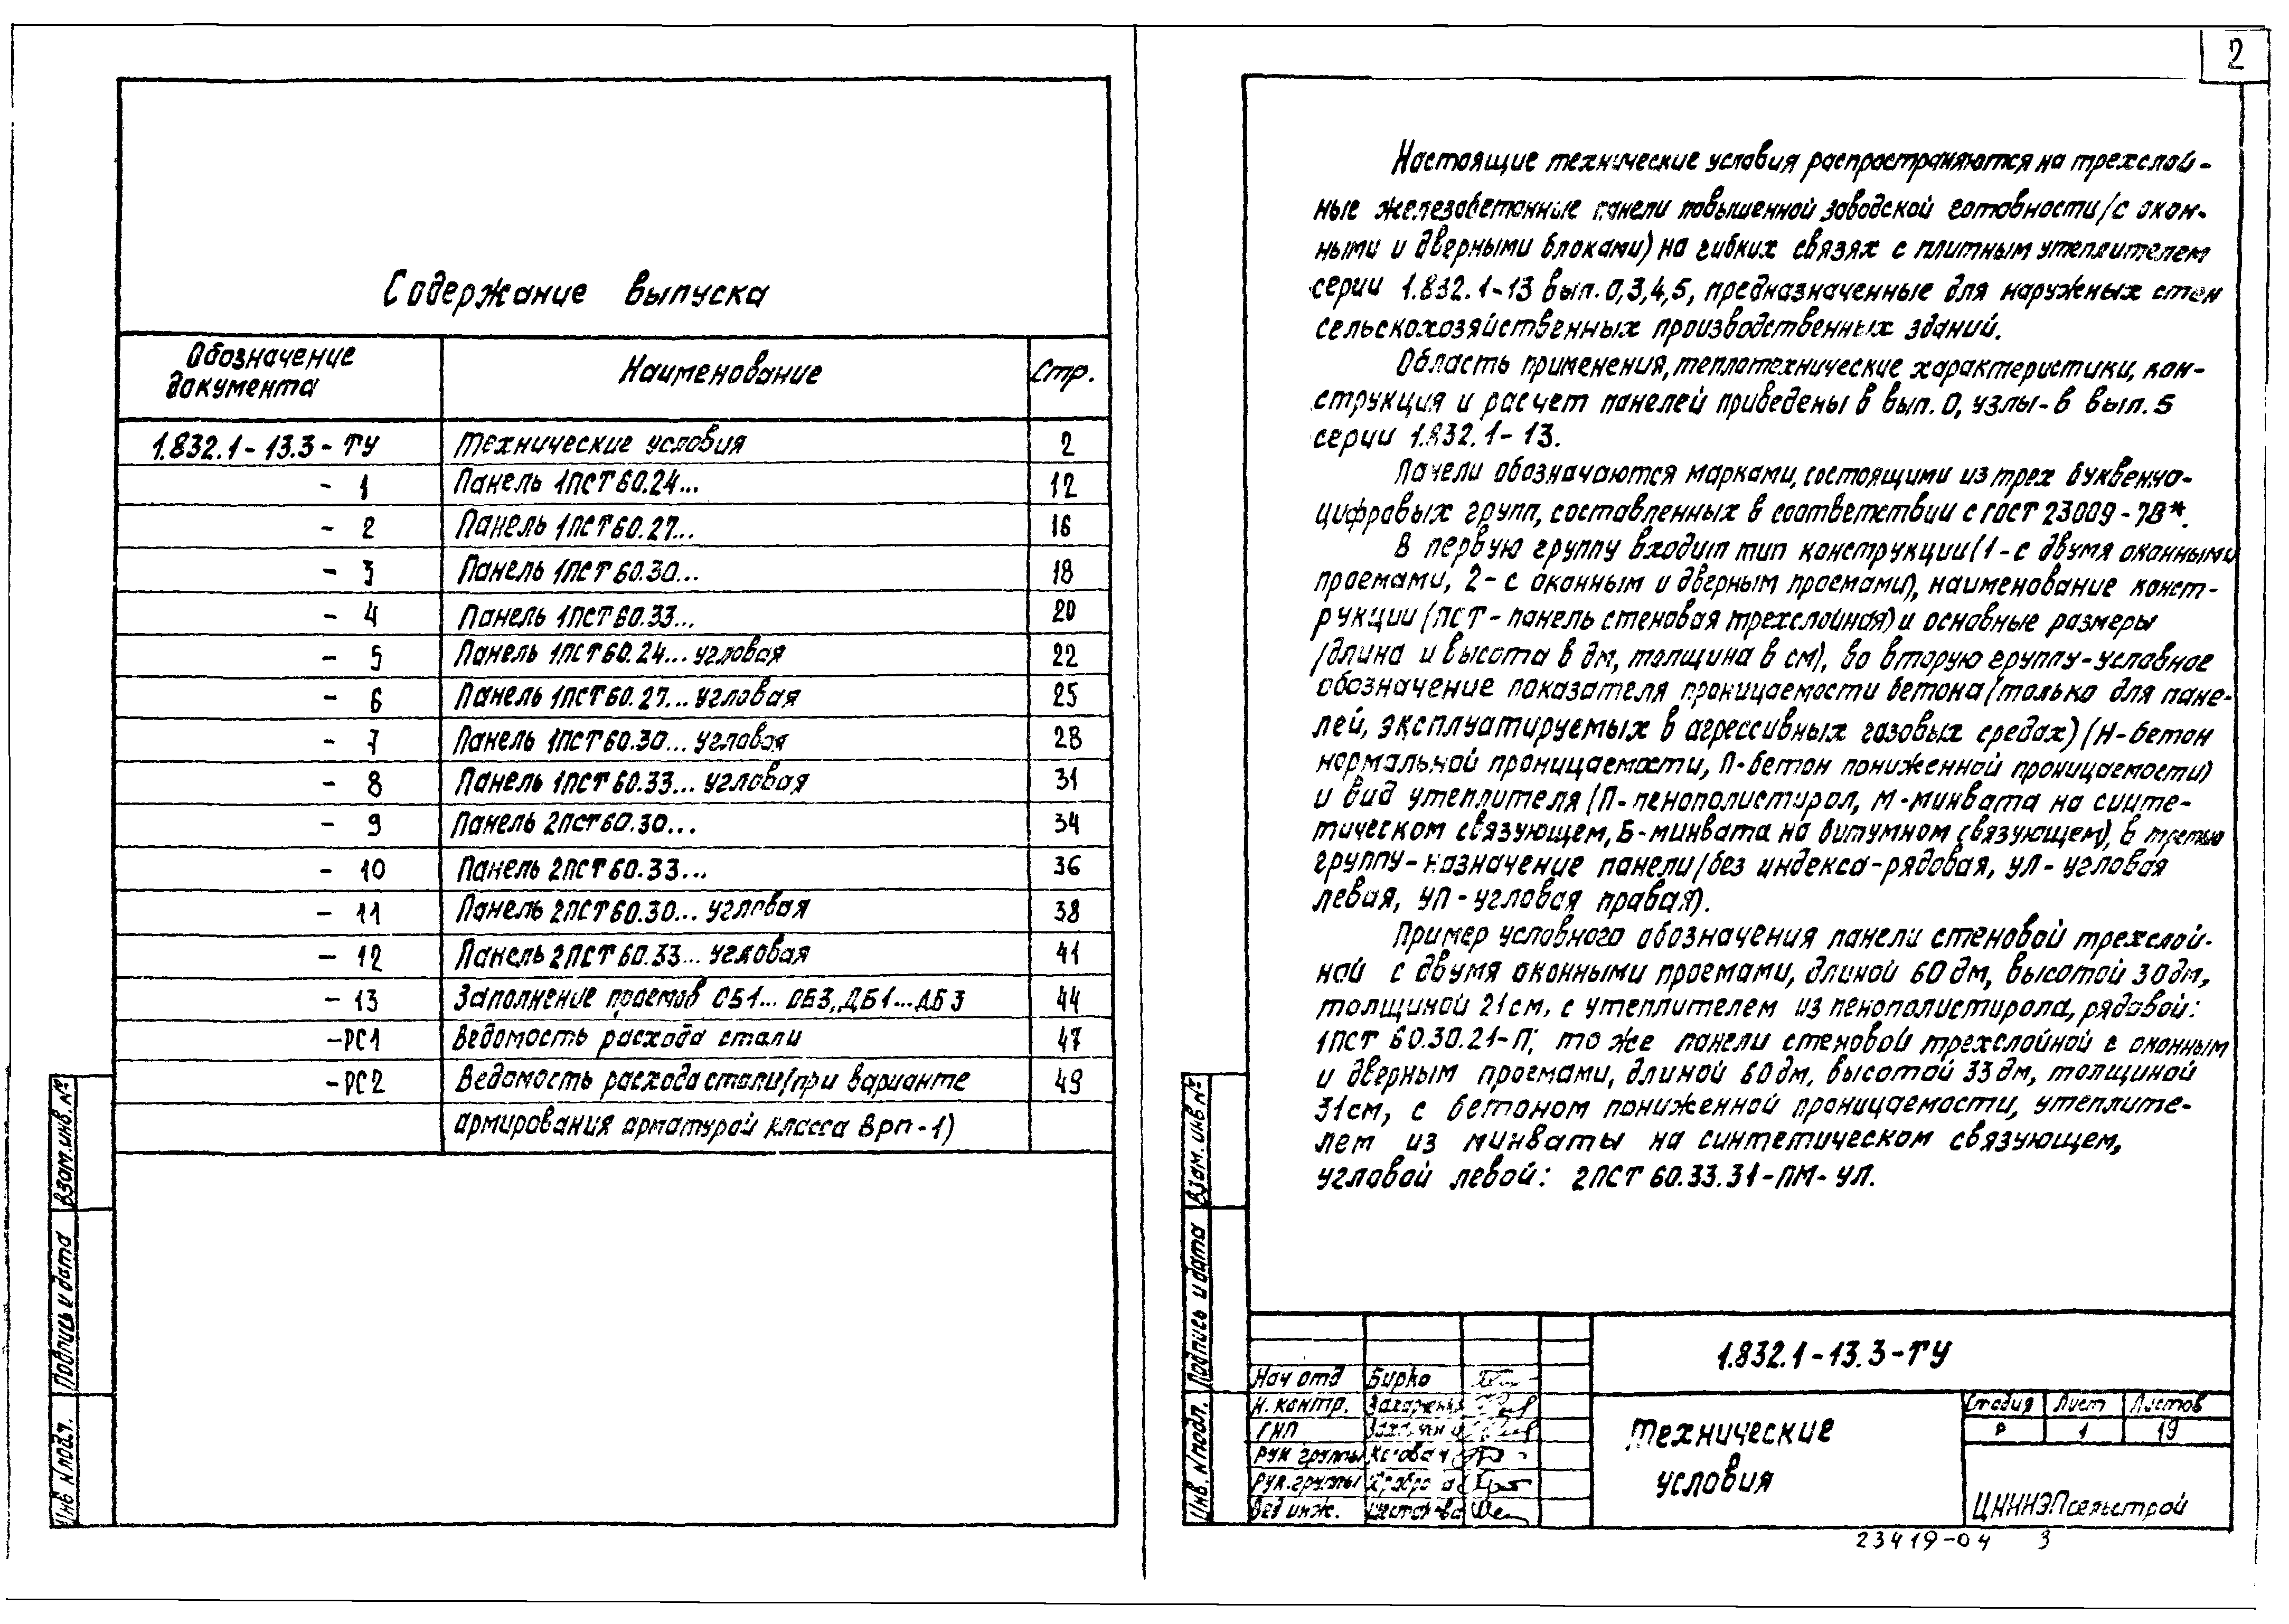 Содержание выпуска
Обозначение документа Наименование Стр.
1.832.1-13.3-ТУ Технические условия 2
- 1 Панель 1ПСТ60.24... 12
- 2 Панель 1ПСТ60.27... 16
- 3 Панель 1ПСТ60.30... 18
- 4 Панель 1ПСТ60.33... 20
- 5 Панель 1ПСТ60.24... угловая 22
- 6 Панель 1ПСТ60.27... угловая 25
- 7 Панель 1ПСТ60.30... угловая 28
- 8 Панель 1ПСТ60.33... угловая 31
- 9 Панель 2ПСТ60.30... 34
- 10 Панель 2ПСТ60.33... 36
- 11 Панель 2ПСТ60.30... угловая 38
- 12 Панель 2ПСТ60.33... угловая 41
- 13 Заполнение проемов ОБ1... ОБ3, ДБ1... ДБ3 44
-РС1 Ведомость расхода стали 47
-РС2 Ведомость расхода стали/при варианте 49
армирования арматурой класса Врп-1)
Взам. инв. №
Подпись и дата
Инв. №подл.
2
Настоящие технические условия распространяются на трехслой-
ные железобетонные панели повышенной заводской готовности/с окон-
ными и дверными блоками) на гибких связях с плитным утеплителем
серии 1.832.1-13 вып. 0,3,4,5, предназначенные для наружных стен
сельскохозяйственных производственных зданий.
Область применения, теплотехнические характеристики, кон-
струкция и расчет панелей приведены в вып. 0, узлы-в вып. 5
серии 1.832.1-13.
Панели обозначаются марками, состоящими из трех буквенно-
цифровых групп, составленных в соответствии с ГОСТ 23009-78*.
В первую группу входит тип конструкции(1-с двумя оконными
проемами, 2-с оконным и дверным проемами), наименование конст-
рукции/ПСТ-панель стеновая трехслойная) и основные размеры
/длина и высота в дм, толщина в см), во вторую группу-условное
обозначение показателя проницаемости бетона/только для пане-
лей, эксплуатируемых в агрессивных газовых средах)(Н-бетон
нормальной проницаемости, П-бетон пониженной проницаемости)
и вид утеплителя/П-пенополистирол, М-минвата на синте-
тическом связующем, Б-минвата на битумном связующем), в третью
группу-назначение панели/без индекса-рядовая, УЛ-угловая
левая, УП-угловая правая).
Пример условного обозначения панели стеновой трехслой-
ной с двумя оконными проемами, длиной 60 дм, высотой 30 дм,
толщиной 21см, с утеплителем из пенополистирола, рядовой:
1ПСТ 60.30.21-П; то же панели стеновой трехслойной с оконным
и дверным проемами, длиной 60 дм, высотой 33 дм, толщиной
31см, с бетоном пониженной проницаемости, утеплите-
лем из минваты на синтетическом связующем,
угловой левой: 2ПСТ 60.33.31-ПМ-УЛ.
Взам. инв №
Подпись и дата
Инв. №подл.
1.832.1-13.3-ТУ
Нач отд Бирко
Н. контр.
ГИП
Рук группы
Рук. группы
Вед инж.
Технические
условия
Стадия Лист Листов
Р 1 19
ЦНИИЭПсельстрой
23419-04 3